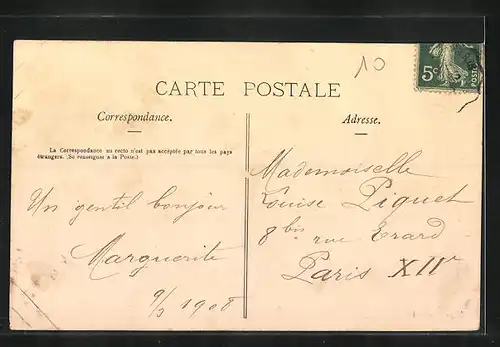 10
5c
POSTES
CARTE POSTALE
Correspondance.
Adresse.
La Correspondance au recto n'est pas acceptée par tous les pays
étrangers. (Se renseigner à la Poste.)
Un gentil bonjour
Marguerite
9/3 1908
Mademoiselle
Louise Piquet
8 bis rue Erard
Paris XIIe